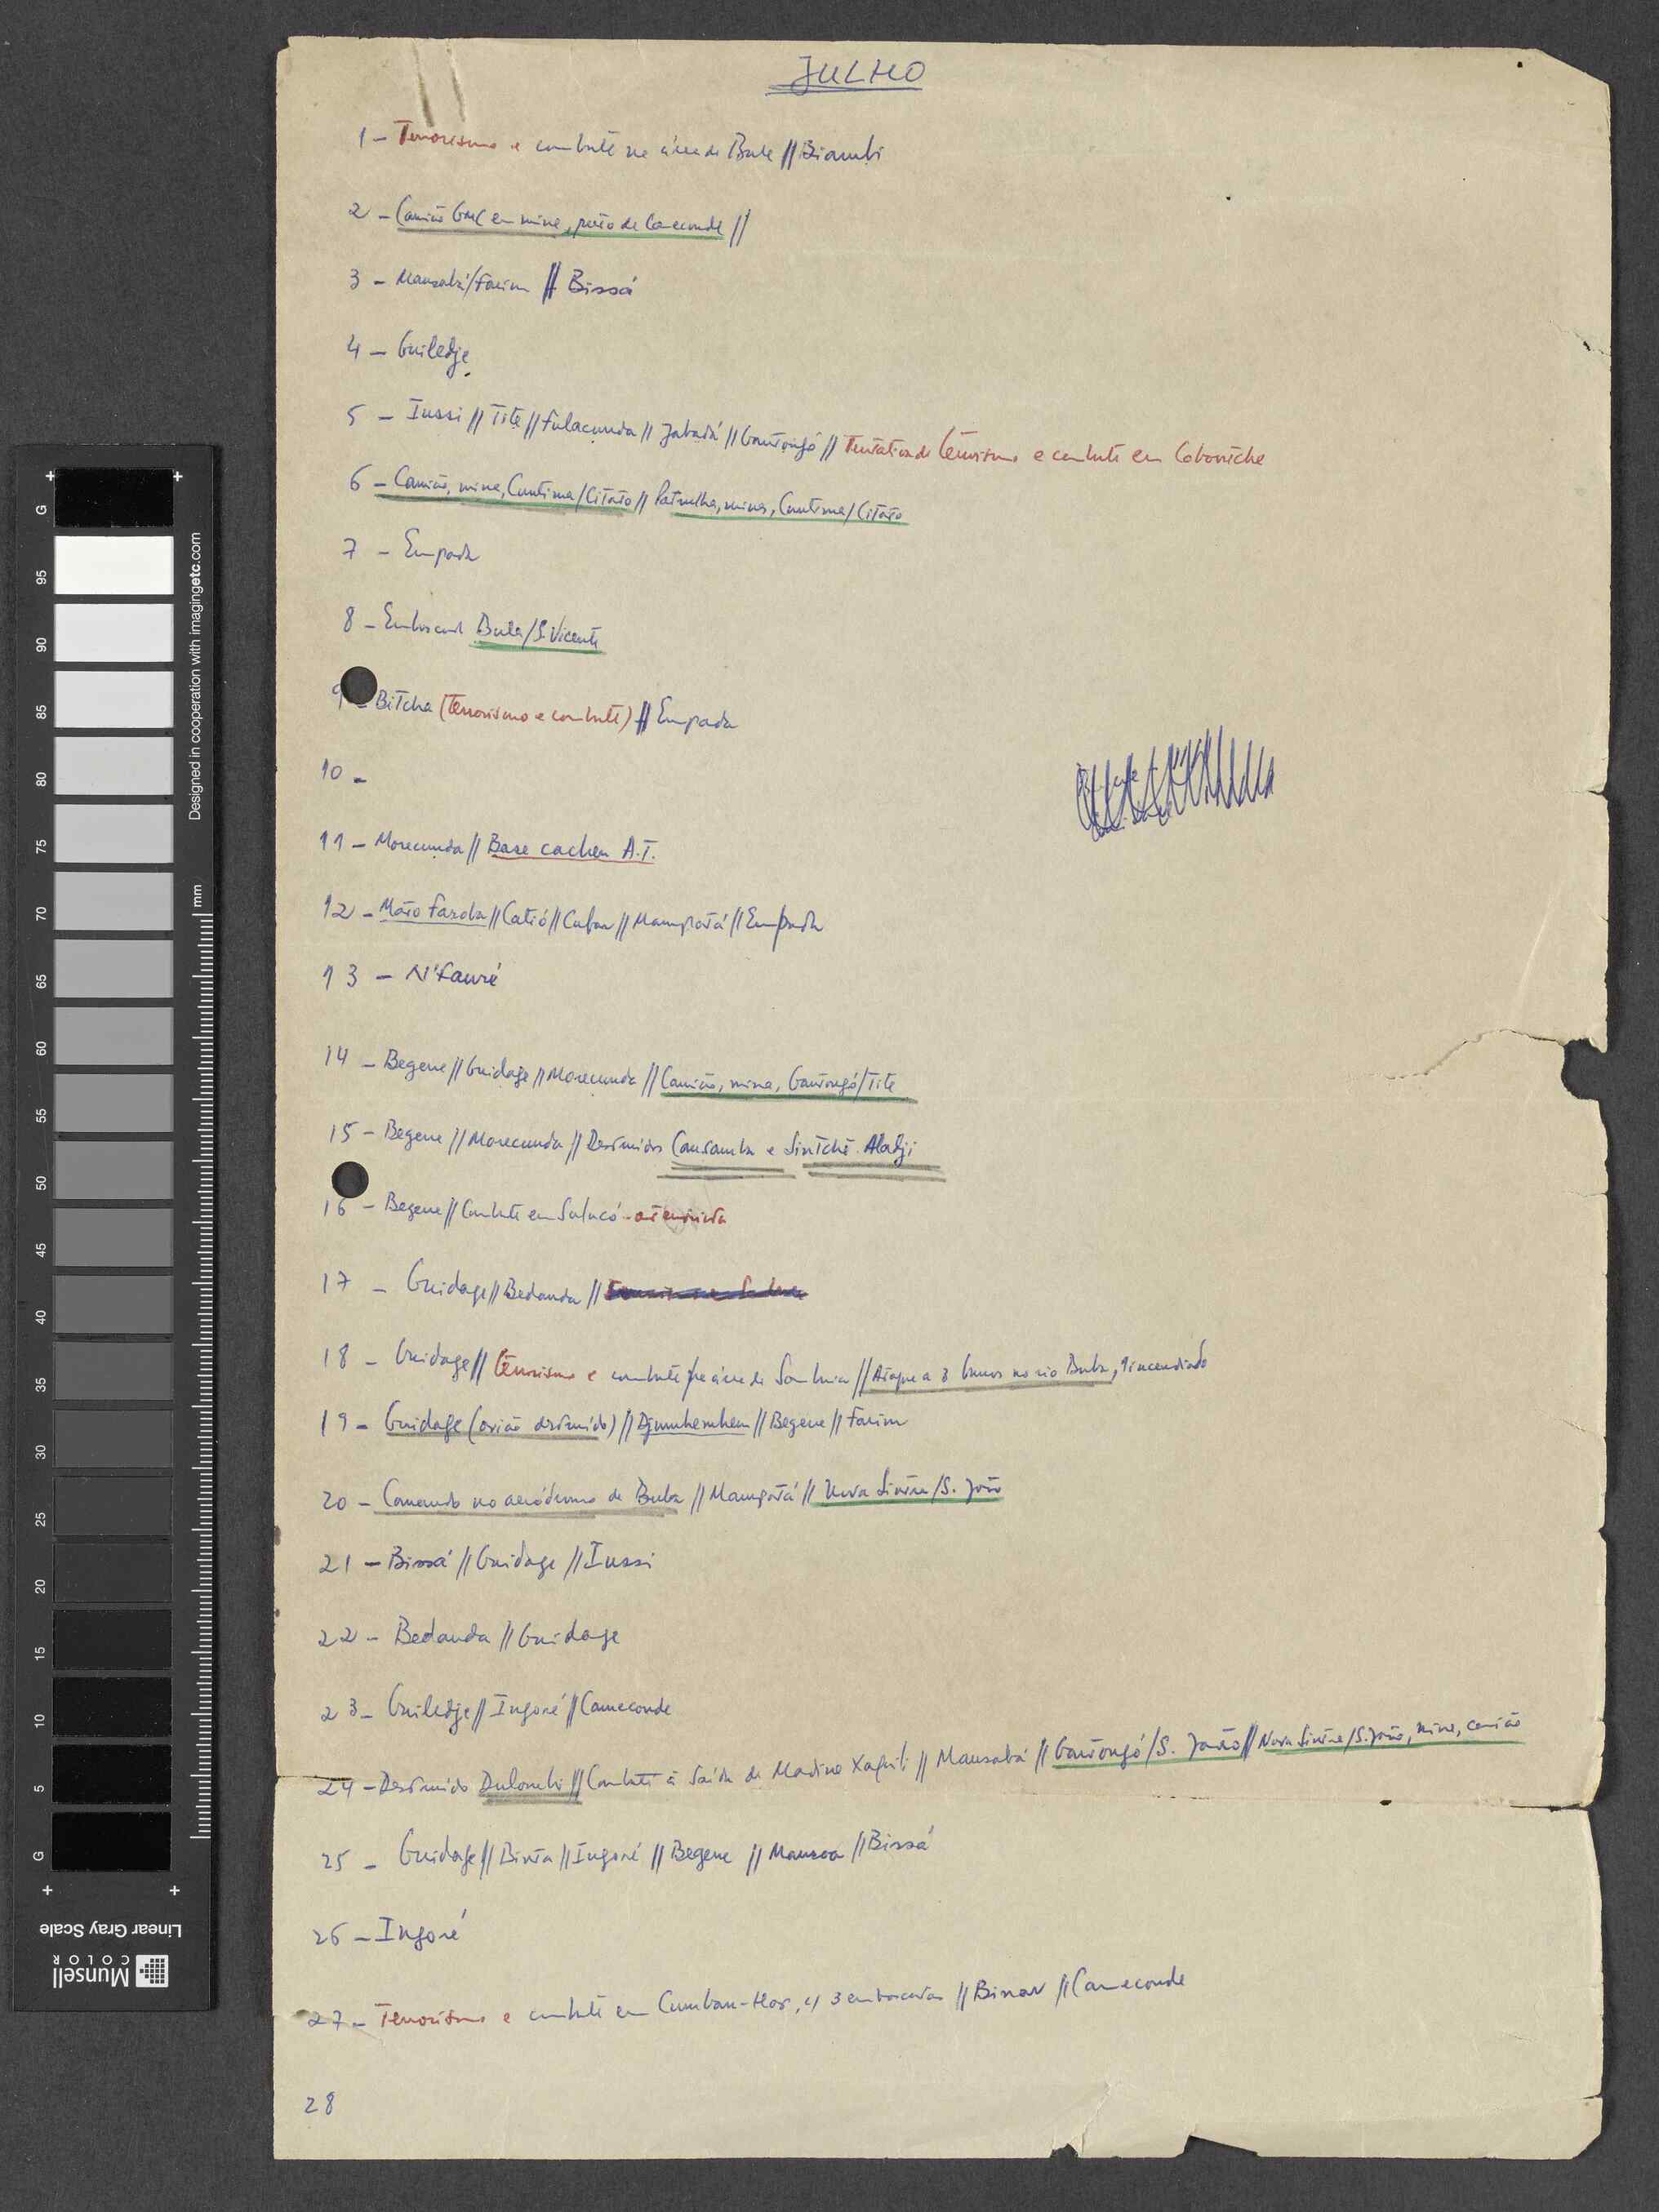 JULHO
1 - Terrorismo e combate na área de Bula // Biambi
2 - Camião GMC em mina, perto de Cameconde //
3 - Mansabá/Farim // Bissá
4 - Guiledje
5 - Iussi // Tite // Fulacunda // Jabadá // Gantongó // Tentativa de terrorismo e combate em Coboniche
6 - Camião, mina, Cuntima/Citato // Patrulha, minas, Cuntima/Citato
7 - Empada
8 - Emboscad Bula/S. Vicente
9 - Bitcha (terrorismo e combate) // Empada
10 -
11 - Morecunda // Base cacheu A.T.
12 - Mato Faroba // Catió // Cufar // Mampatá // Empada
13 - N'Fauré
14 - Begene // Guidage // Morecunda // Camião, mina, Gantongó/Tite
15 - Begene // Morecunda // Destruidos Cansamba e Sintchã Aladji
16 - Begene // Combate em Salucó
17 - Guidage // Bedanda //
18 - Guidage // terrorismo e combate área de Sambuia // Ataque a 3 barcos no rio Buba, 1 incendiado
19 - Guidage (avião destruído) // Djumbembem // Begene // Farim
20 - Comando no aeródromo de Buba // Mampatá // Nova Sintra/S. João
21 - Bissá // Guidage // Iussi
22 - Bedanda // Guidage
23 - Guiledje // Ingoré // Cameconde
24 - Destruido Dulombi // Combate à saída de Madina Xaquili // Mansabá // Gantongó/S. João // Nova Sintra/S. João, mina, camião
25 - Guidage // Binta // Ingoré // Begene // Mansoa // Bissá
26 - Ingoré
27 - Terrorismo e combate em Cumbam-Hor, c/ 3 emboscadas // Binar // Cameconde
28
Designed in cooperation with imagingetc.com
mm
G 95 90 85 80 75 70 65 60 55 50 45 40 35 30 25 20 15 10 5 G
Linear Gray Scale
Munsell
COLOR